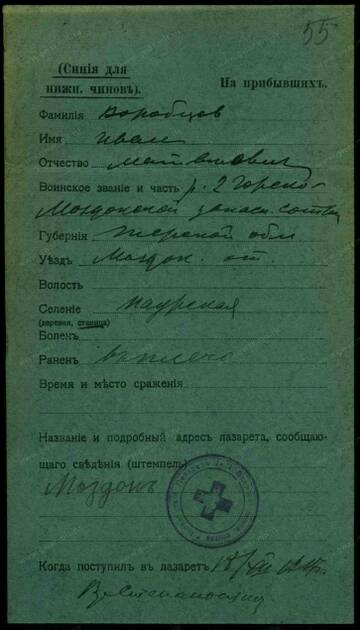 55
(Синія для
нижн. чиновъ).
На прибывшихъ.
Фамилія Воробцов
Имя Иван
Отчество
Воинское званіе и часть р. 2 Горско-
Моздокской запасн. сотни
Губернія Терской обл
Уѣздъ Моздок. от.
Волость
Селеніе Наурская
(деревня, станица)
Боленъ
Раненъ
Время и мѣсто сраженія
Названіе и подробный адресъ лазарета, сообщаю-
щаго свѣдѣнія (штемпель)
Моздокъ
Когда поступилъ въ лазаретъ 18/